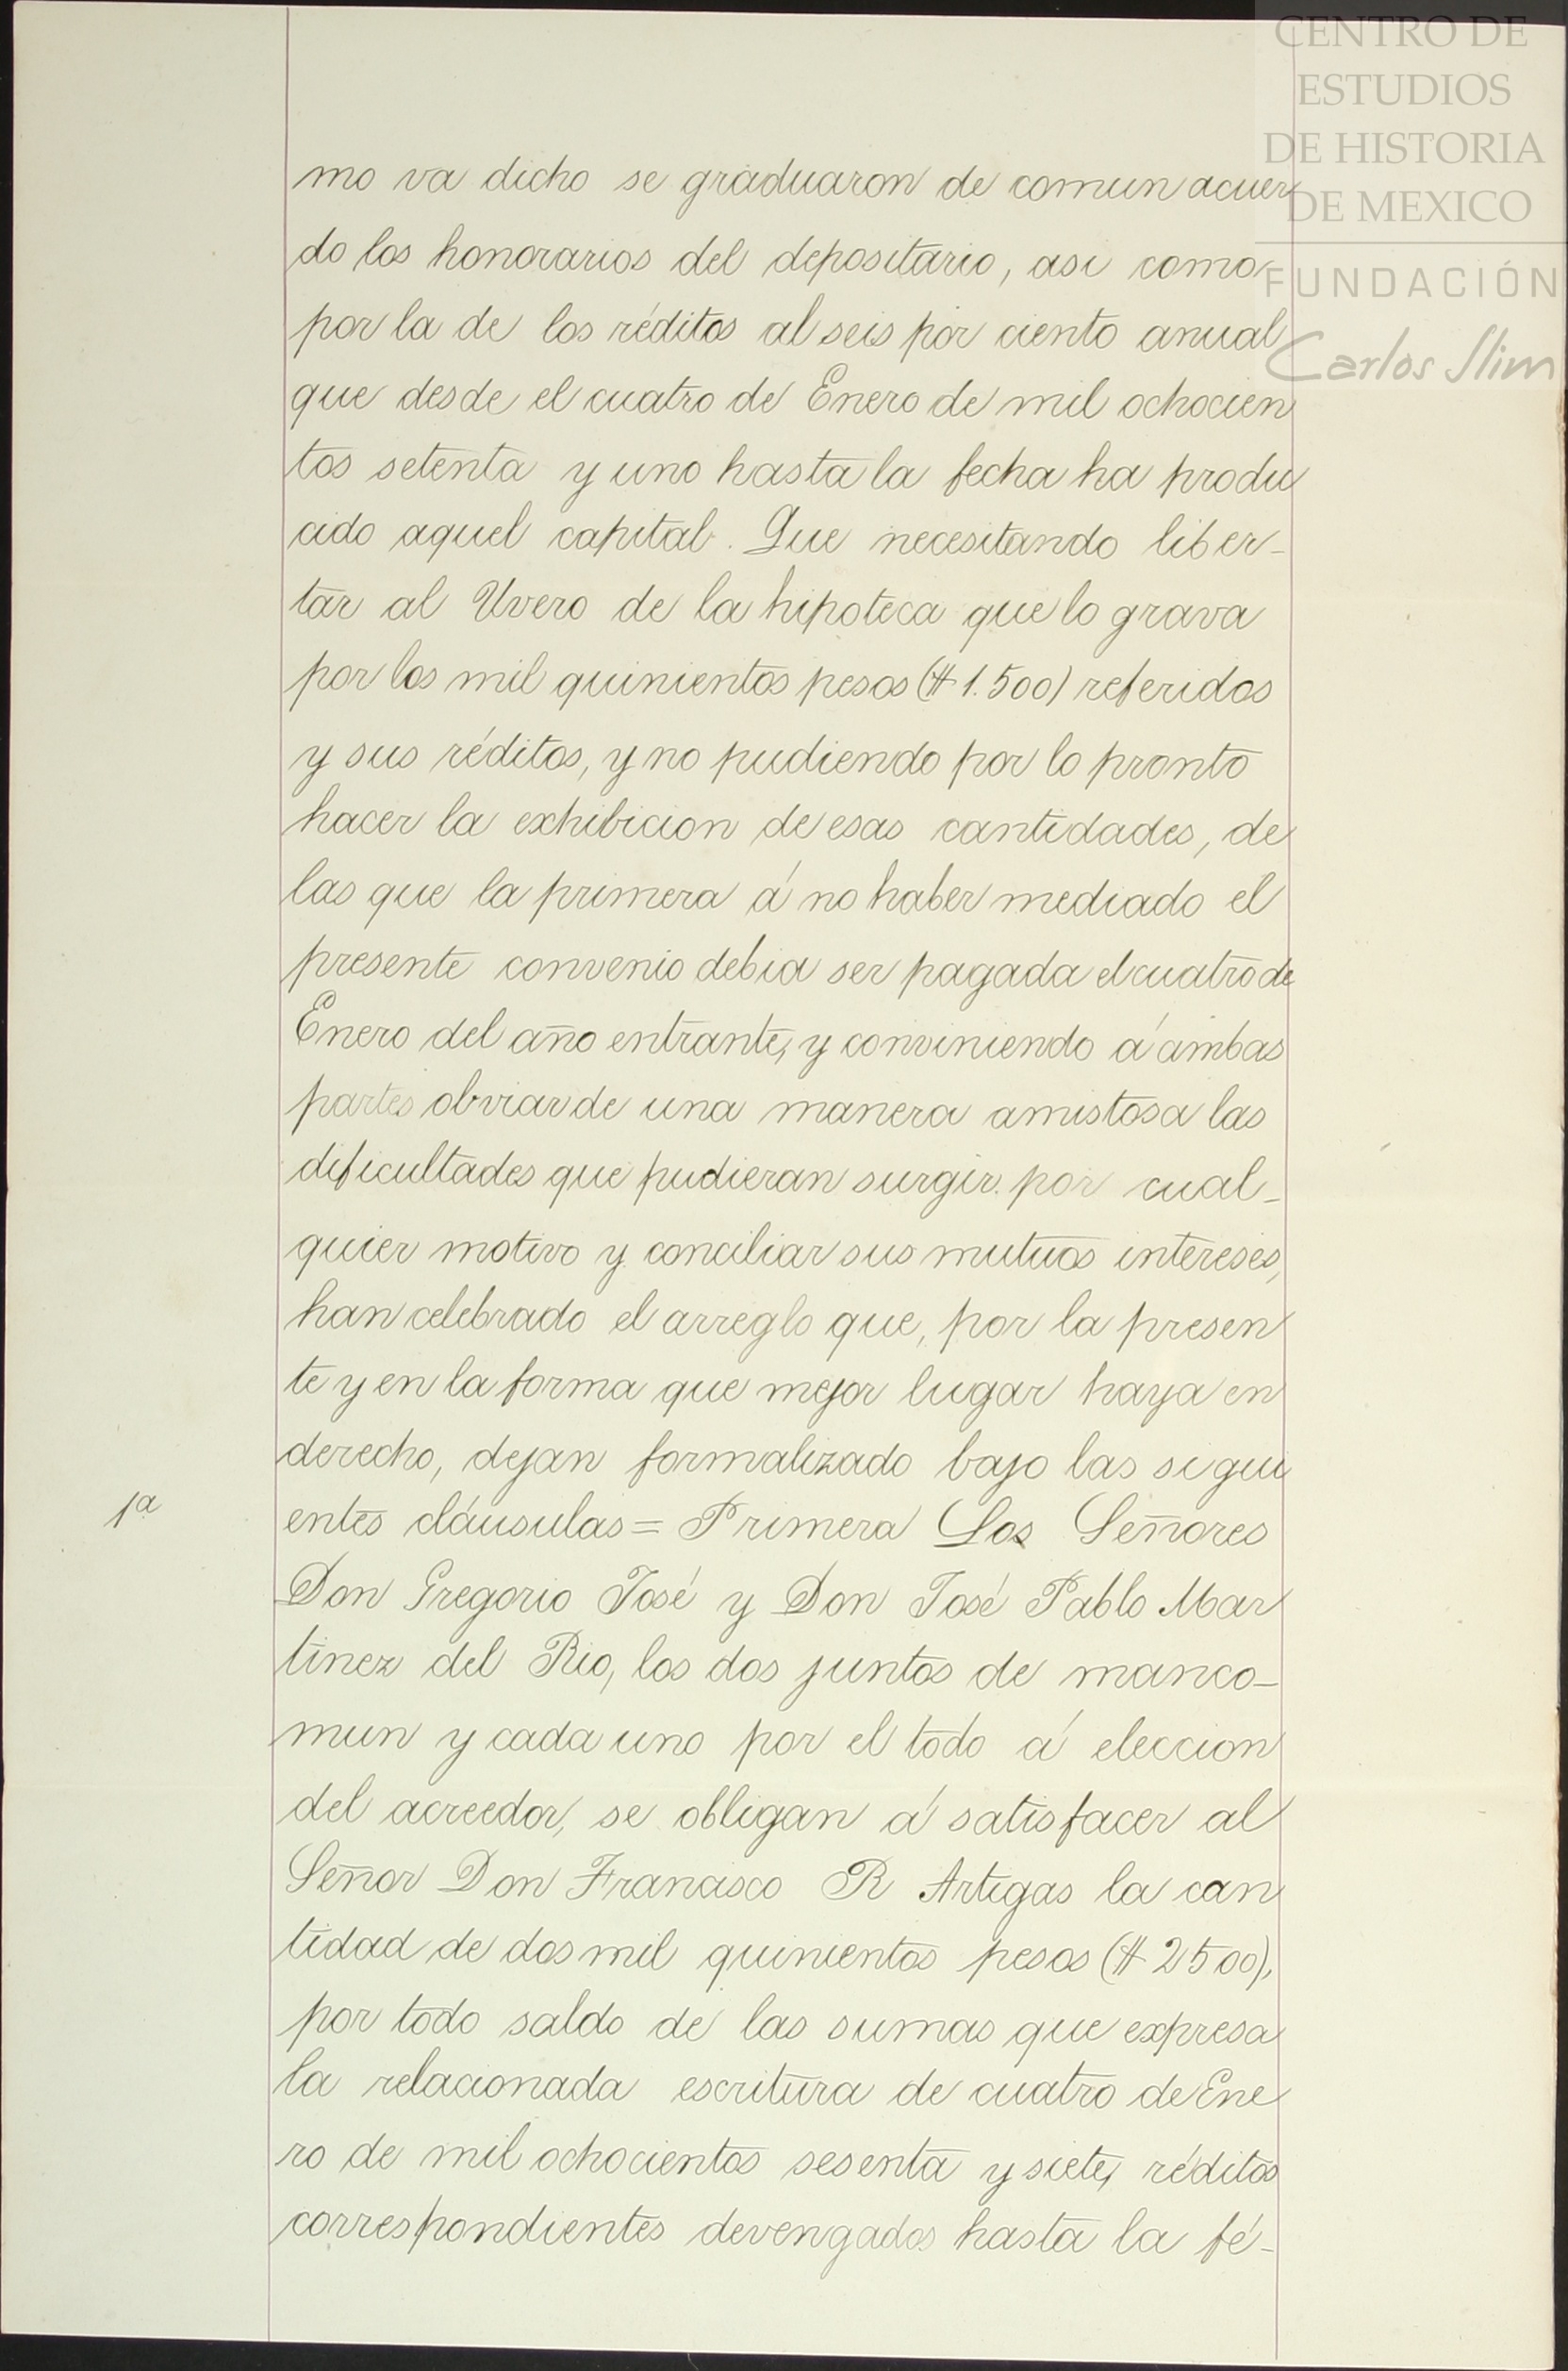 CENTRO DE
ESTUDIOS
DE HISTORIA
DE MEXICO
FUNDACIÓN
Carlos Slim
mo va dicho se graduaron de comun acuer
do los honorarios del depositario, asi como
por la de los réditos al seis por ciento anual
que desde el cuatro de Enero de mil ochocien
tos setenta y uno hasta la fecha ha produ
cido aquel capital. Que necesitando liber-
tar al Uvero de la hipoteca que lo grava
por los mil quinientos pesos ($ 1.500) referidos
y sus réditos, y no pudiendo por lo pronto
hacer la exhibicion de esas cantidades, de
las que la primera á no haber mediado el
presente convenio debia ser pagada el cuatro de
Enero del año entrante, y conviniendo á ambas
partes obviar de una manera amistosa las
dificultades que pudieran surgir por cual-
quier motivo y conciliar sus mutuos intereses,
han celebrado el arreglo que, por la presen
te y en la forma que mejor lugar haya en
derecho, dejan formalizado bajo las sigui
1ª
entes cláusulas = Primera Los Señores
Don Gregorio José y Don José Pablo Mar
tinez del Rio, los dos juntos de manco-
mun y cada uno por el todo á eleccion
del acreedor, se obligan á satisfacer al
Señor Don Francisco R Artigas la can
tidad de dos mil quinientos pesos ($ 2500),
por todo saldo de las sumas que expresa
la relacionada escritura de cuatro de Ene
ro de mil ochocientos sesenta y siete, réditos
correspondientes devengados hasta la fé-